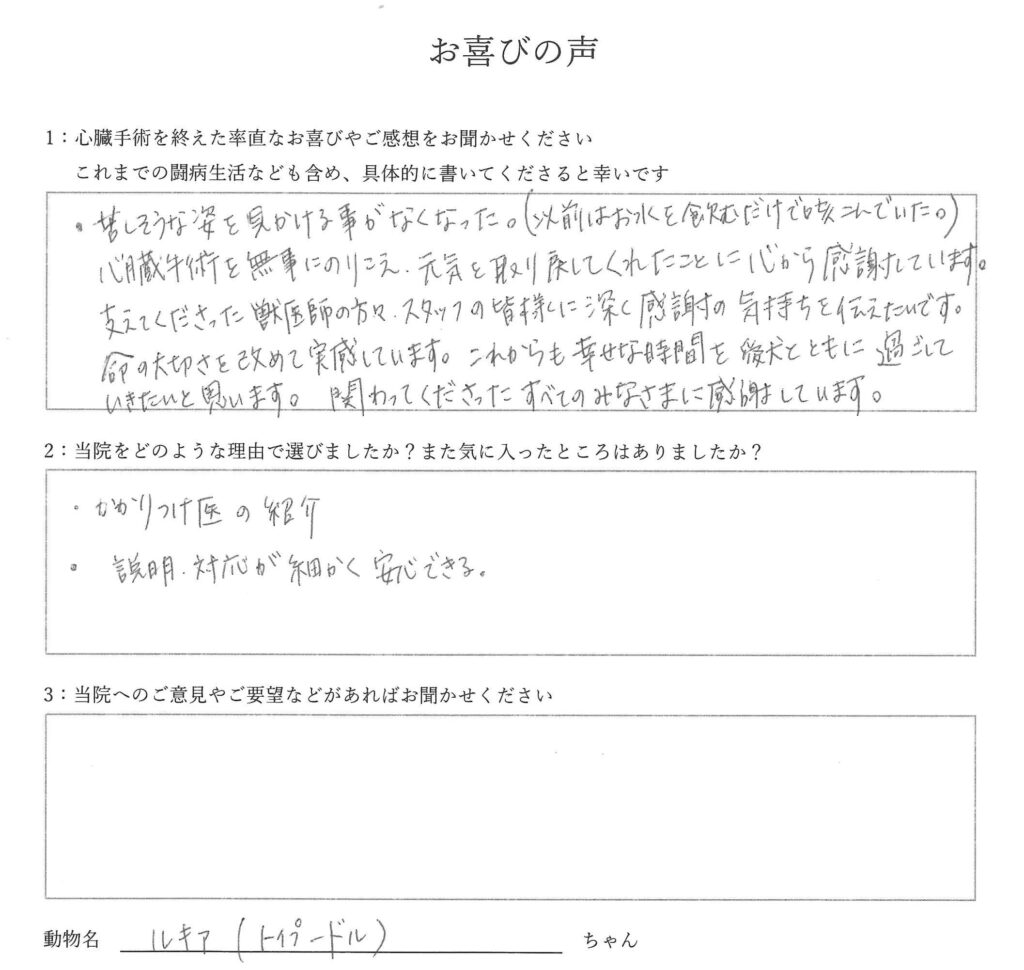 お喜びの声
1：心臓手術を終えた率直なお喜びやご感想をお聞かせください
これまでの闘病生活なども含め、具体的に書いてくださると幸いです
・苦しそうな姿を見かける事がなくなった。(以前はお水を飲むだけで咳こんでいた。)
心臓手術を無事にのりこえ、元気を取り戻してくれたことに心から感謝しています。
支えてくださった獣医師の方々、スタッフの皆様に深く感謝の気持ちを伝えたいです。
命の大切さを改めて実感しています。これからも幸せな時間を愛犬とともに過ごして
いきたいと思います。 関わってくださったすべてのみなさまに感謝しています。
2：当院をどのような理由で選びましたか？また気に入ったところはありましたか？
・かかりつけ医の紹介
・説明、対応が細かく安心できる。
3：当院へのご意見やご要望などがあればお聞かせください
動物名 ルキア(トイプードル) ちゃん